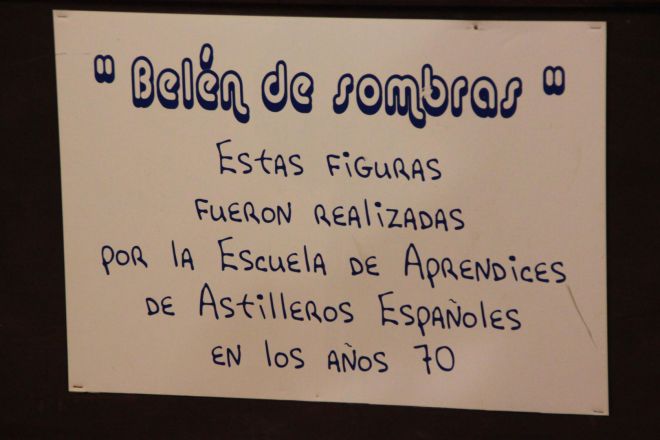 " Belén de sombras "
Estas figuras
fueron realizadas
por la Escuela de Aprendices
de Astilleros Españoles
en los años 70